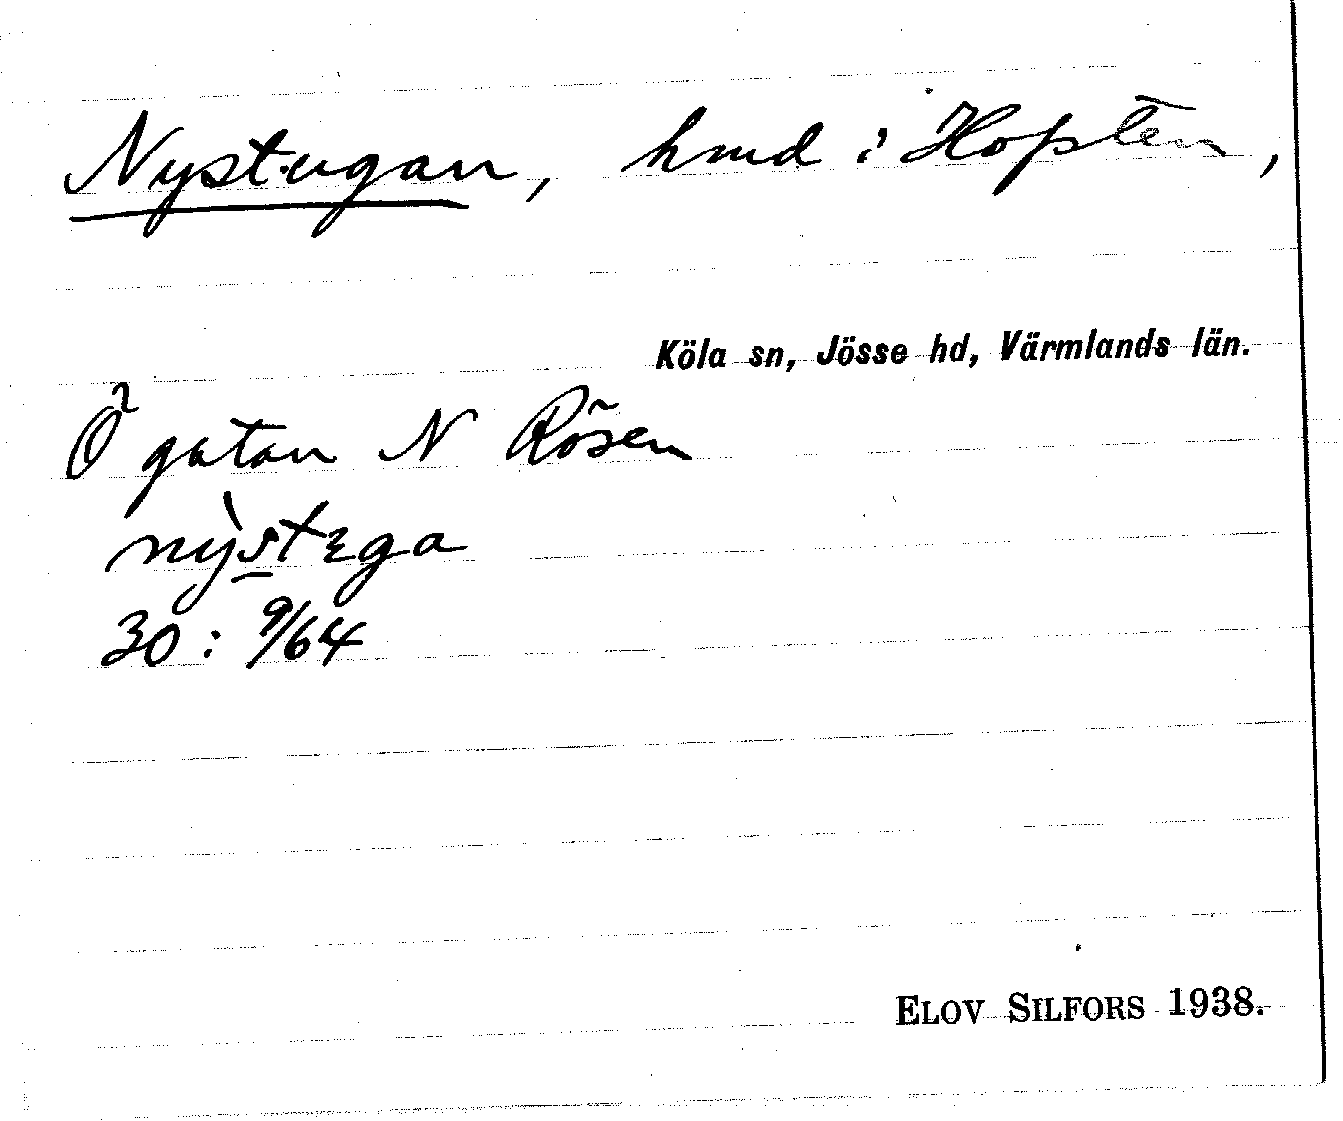 Nystugan, hmd i Hopsten,
Köla sn, Jösse hd, Värmlands län.
Ö gatan N Rösen
nỳstɛga
30: 9/64
ELOV SILFORS 1938.